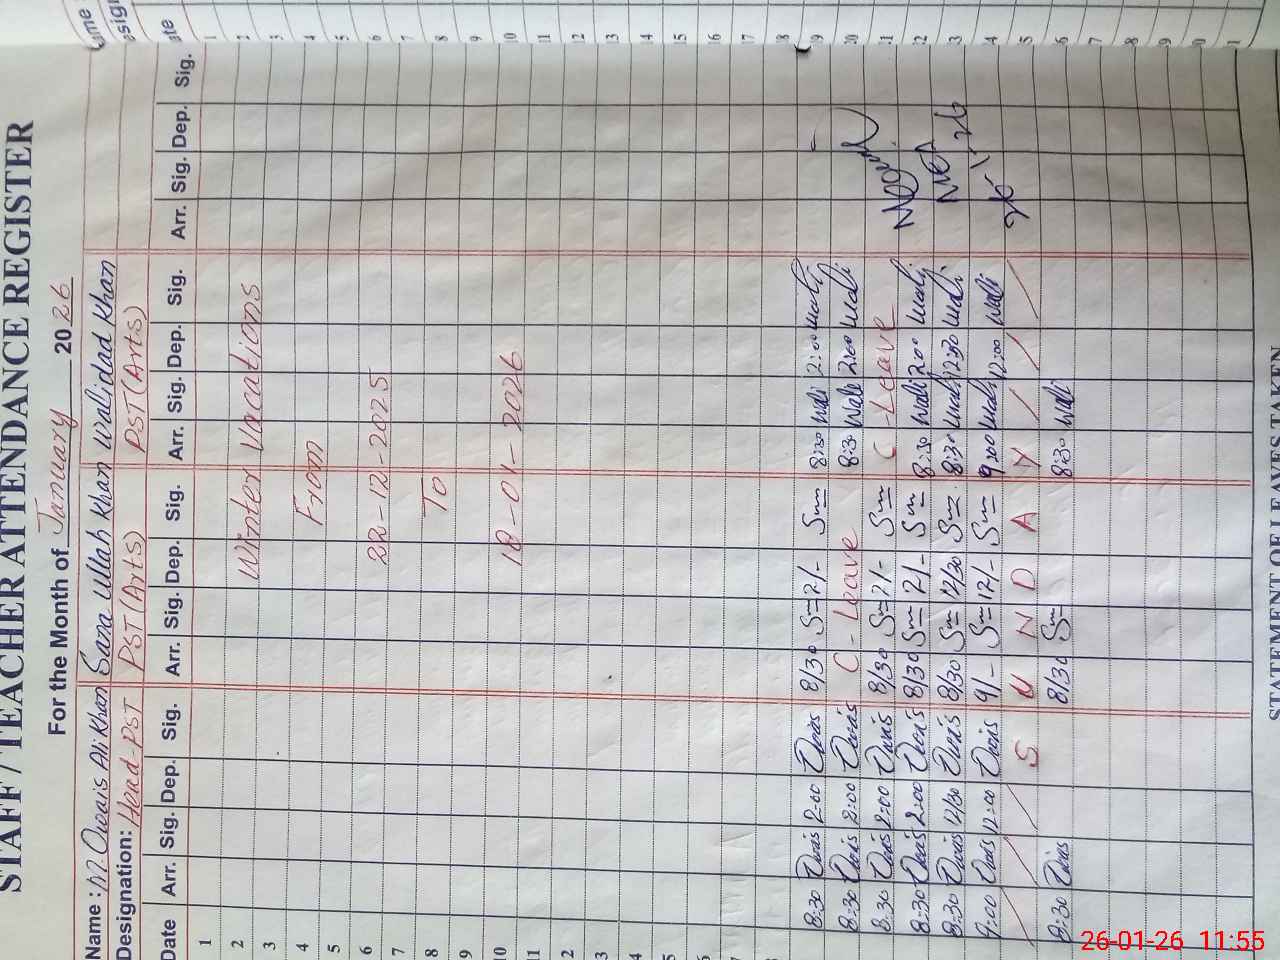 STAFF / TEACHER ATTENDANCE REGISTER
For the Month of January 2026
Name : M. Owais Ali Khan Sana Ullah Khan Walidad Khan
Designation: Head PST PST (Arts) PST (Arts)
Date Arr. Sig. Dep. Sig. Arr. Sig. Dep. Sig. Arr. Sig. Dep. Sig. Arr. Sig. Dep. Sig.
1
2 Winter Vacations
3
4 From
5
6 22-12-2025
7
8 To
9
10 18-01-2026
8:30 Owais 2:00 Owais 8/30 Sm 2/- Sm 8:30 Wali 2:00 Wali
8:30 Owais 2:00 Owais C - Leave 8:30 Wali 2:00 Wali
8:30 Owais 2:00 Owais 8/30 Sm 2/- Sm C - Leave
8:30 Owais 2:00 Owais 8/30 Sm 2/- Sm 8:30 Wali 2:00 Wali
8:30 Owais 12/30 Owais 8/30 Sm 12/30 Sm 8:30 Wali 12:30 Wali
9:00 Owais 12:00 Owais 9/- Sm 12/- Sm 9:00 Wali 12:00 Wali
S U N D A Y
8:30 Owais 8/30 Sm 8:30 Wali
STATEMENT OF LEAVES TAKEN
26-01-26 11:55